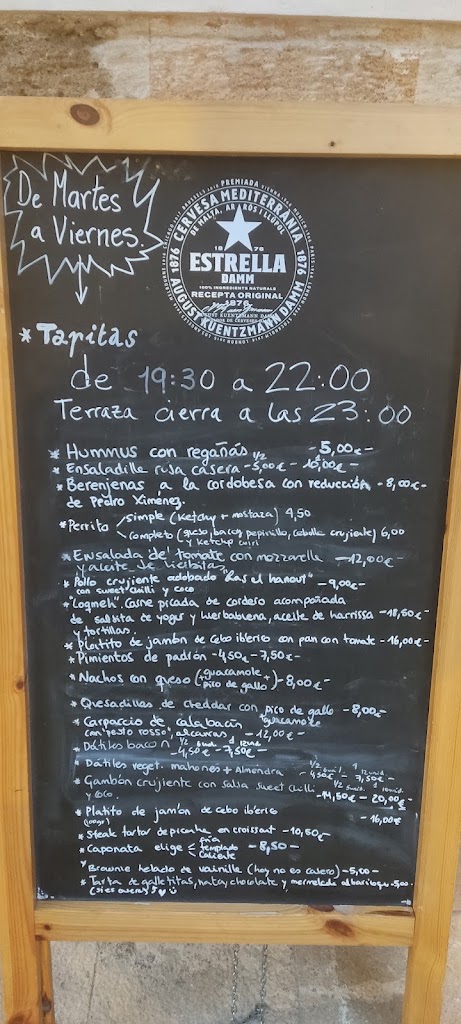 De Martes
a Viernes.
PREMIADA
CERVESA MEDITERRÀNIA
DE MALTA, ARRÒS I LLÚPOL
1876
1876
18 76
ESTRELLA
DAMM
100% INGREDIENTS NATURALS
RECEPTA ORIGINAL
1876
AUGUST KUENTZMANN DAMM
* Tapitas
de 19:30 a 22:00
Terraza cierra a las 23:00
* Hummus con regañás -5,00€-
* Ensaladilla rusa casera 1/2 -5,00€ - 10,00€-
* Berenjenas a la cordobesa con reducción -8,00€-
de Pedro Ximénez.
* Perrito simple (ketchup + mostaza) 4,50
completo (queso, bacon, pepinillo, cebolla crujiente) 6,00
y ketchup curri
* Ensalada de tomate con mozzarella -12,00€-
y aceite de hierbitas
* Pollo crujiente adobado "Ras el hanout" -9,00€-
con sweet chilli y coco
* "Logmeh". Carne picada de cordero acompañada
de salsita de yogur y hierbabuena, aceite de harrissa -18,50€-
y tortillas.
* Platito de jamón de cebo ibérico con pan con tomate -16,00€-
* Pimientos de padrón -4,50€ - 7,50€-
* Nachos con queso (guacamole + pico de gallo) -8,00€-
* Quesadillas de cheddar con pico de gallo -8,00€-
guacamole
* Carpaccio de calabacín
con "pesto rosso", alcaparras -12,00€-
* Dátiles bacon 1/2 6unid. 1 12unid
-4,50€ - 7,50€-
* Dátiles veget. mahonés + Almendra 1/2 6unid. 1 12unid
-4,50€ - 7,50€-
* Gambón crujiente con salsa sweet chilli 1/2 5unid. 1 10unid.
y coco -11,50€ - 20,00€-
* Platito de jamón de cebo ibérico -16,00€-
* Steak tartar de picanha en croissant -10,50€-
* Caponata elige fría
templado
caliente -8,50-
* Brownie helado de vainilla (hoy no es casero) -5,00-
* Tarta de galletitas, nata y chocolate y mermelada albaricoque 5,00